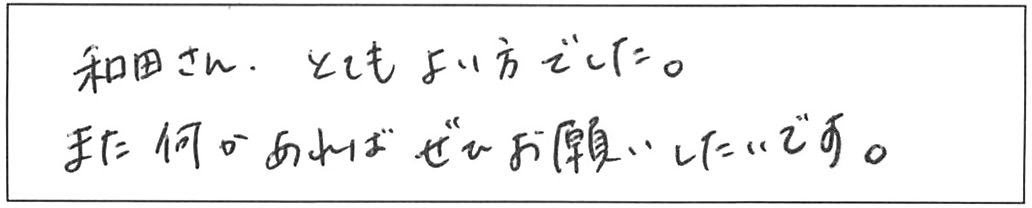 和田さん、とてもよい方でした。
また何かあればぜひお願いしたいです。